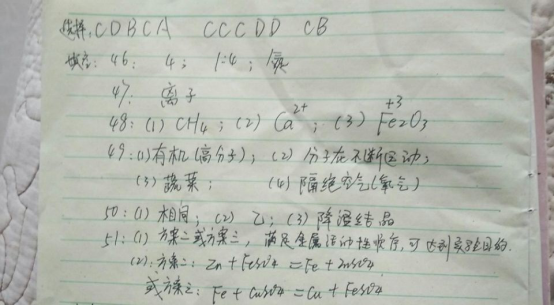 选择: CDBCA CCCDD CB
填空: 46: 4; 1:4; 氮
47: 离子
48: (1) CH₄; (2) Ca²⁺; (3) Fe₂O₃ +3
49: (1) 有机(高分子); (2) 分子在不断运动;
(3) 蔬菜; (4) 隔绝空气(氧气)
50: (1) 相同; (2) 乙; (3) 降温结晶
51: (1) 方案二或方案三, 满足金属活动性顺序, 可达到实验目的.
(2): 方案二: Zn + FeSO4 = Fe + ZnSO4
或方案三: Fe + CuSO4 = Cu + FeSO4